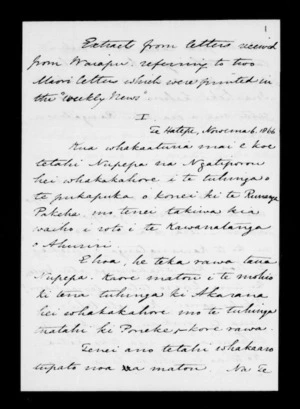 1
Extract from letters received
from Wairapu referring to two
Maori letters which were printed in
the "Weekly News"
I
Te Hatepe, Novema 6. 1866
Kua whakaaturia mai e koe
tetahi Nupepa na Ngatiporou
hei whakakahore i te tuhinga o
te pukapuka o konei ki te Runanga
Pakeha, mo tenei takiwa kia
waiho i roto i te Kawanatanga
o Ahuriri.
E hoa, he teka rawa tena
Nupepa. Kaore matou i te mohio
ki tena tuhinga ki Akarana
hei whakakahore mo te tuhinga
tuatahi ki Poneke, kore rawa.
Tenei ano tetahi whakaaro
tupato noa a matou. Na Te